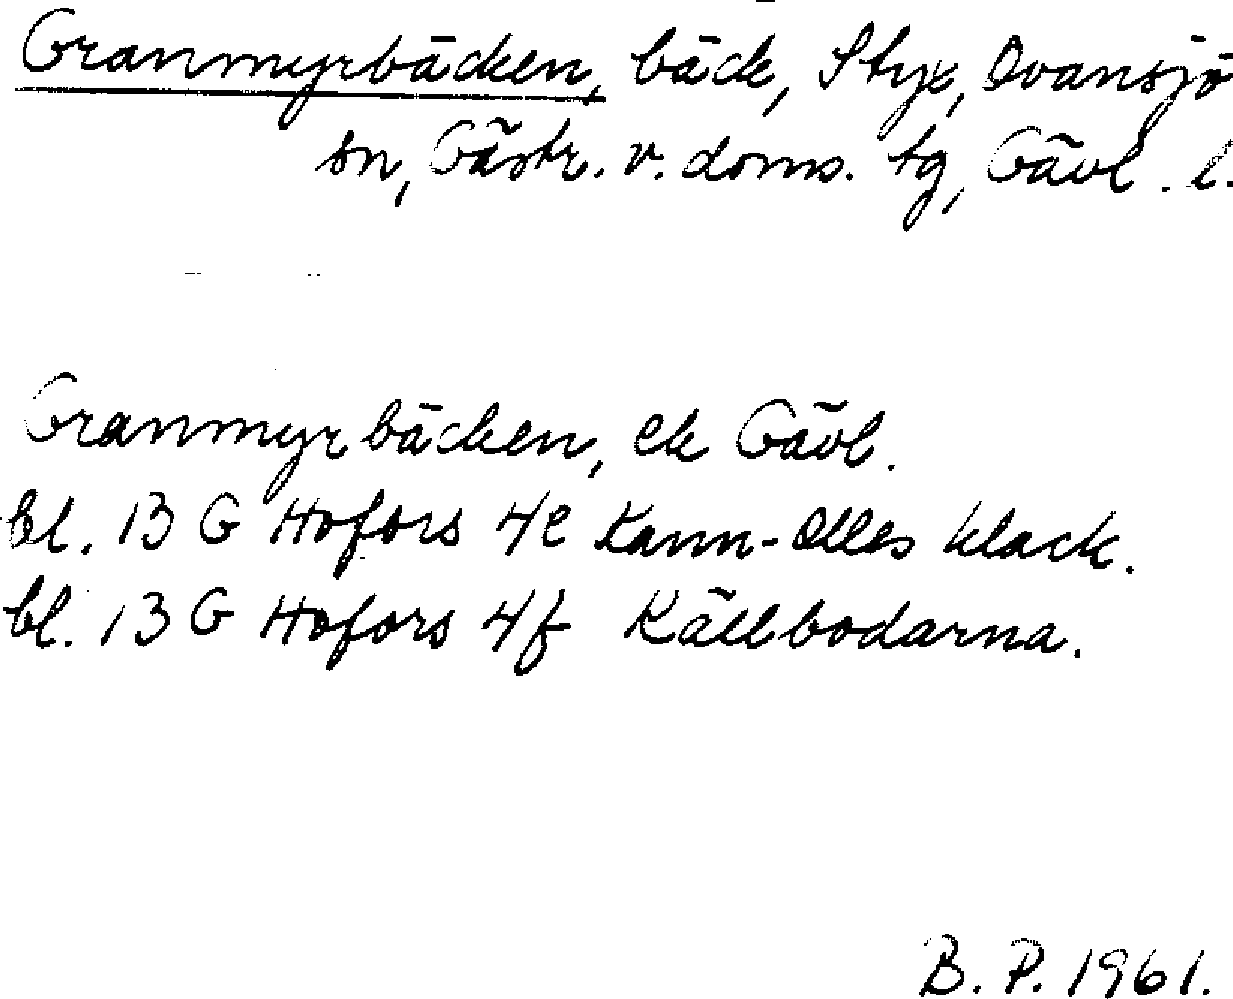 Granmyrbäcken, bäck, Styx, Ovansjö
sn, Gästr. v. doms. tg, Gävl. l.
Granmyrbäcken, ek Gävl.
bl. 13 G Hofors 4e Kann-Olles klack.
bl. 13 G Hofors 4f Källbodarna.
B. P. 1961.